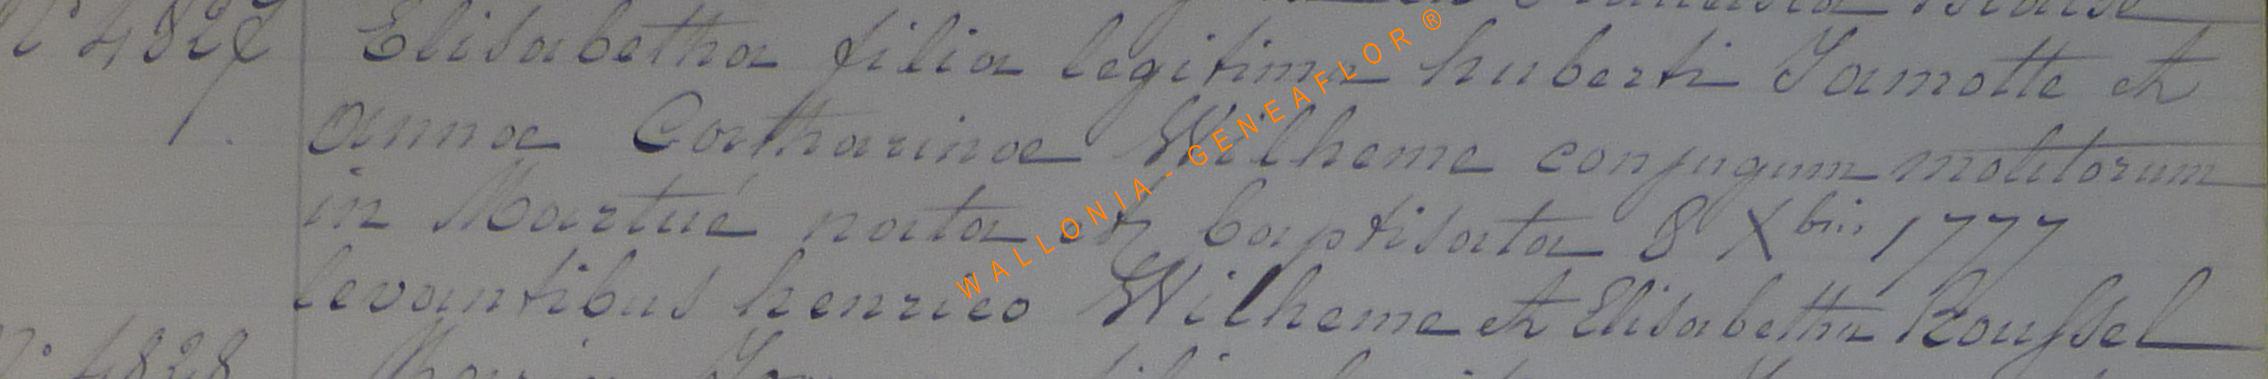 N° 4827 Elisabetha filia legitima huberti Jamotte et
annæ Catharinæ Wilheme conjugum molitorum
in Martué nata et baptisata 8 Xbris 1777
levantibus henrico Wilheme et Elisabetha Roussel
N° 4828
WALLONIA - GENEAFLOR ®